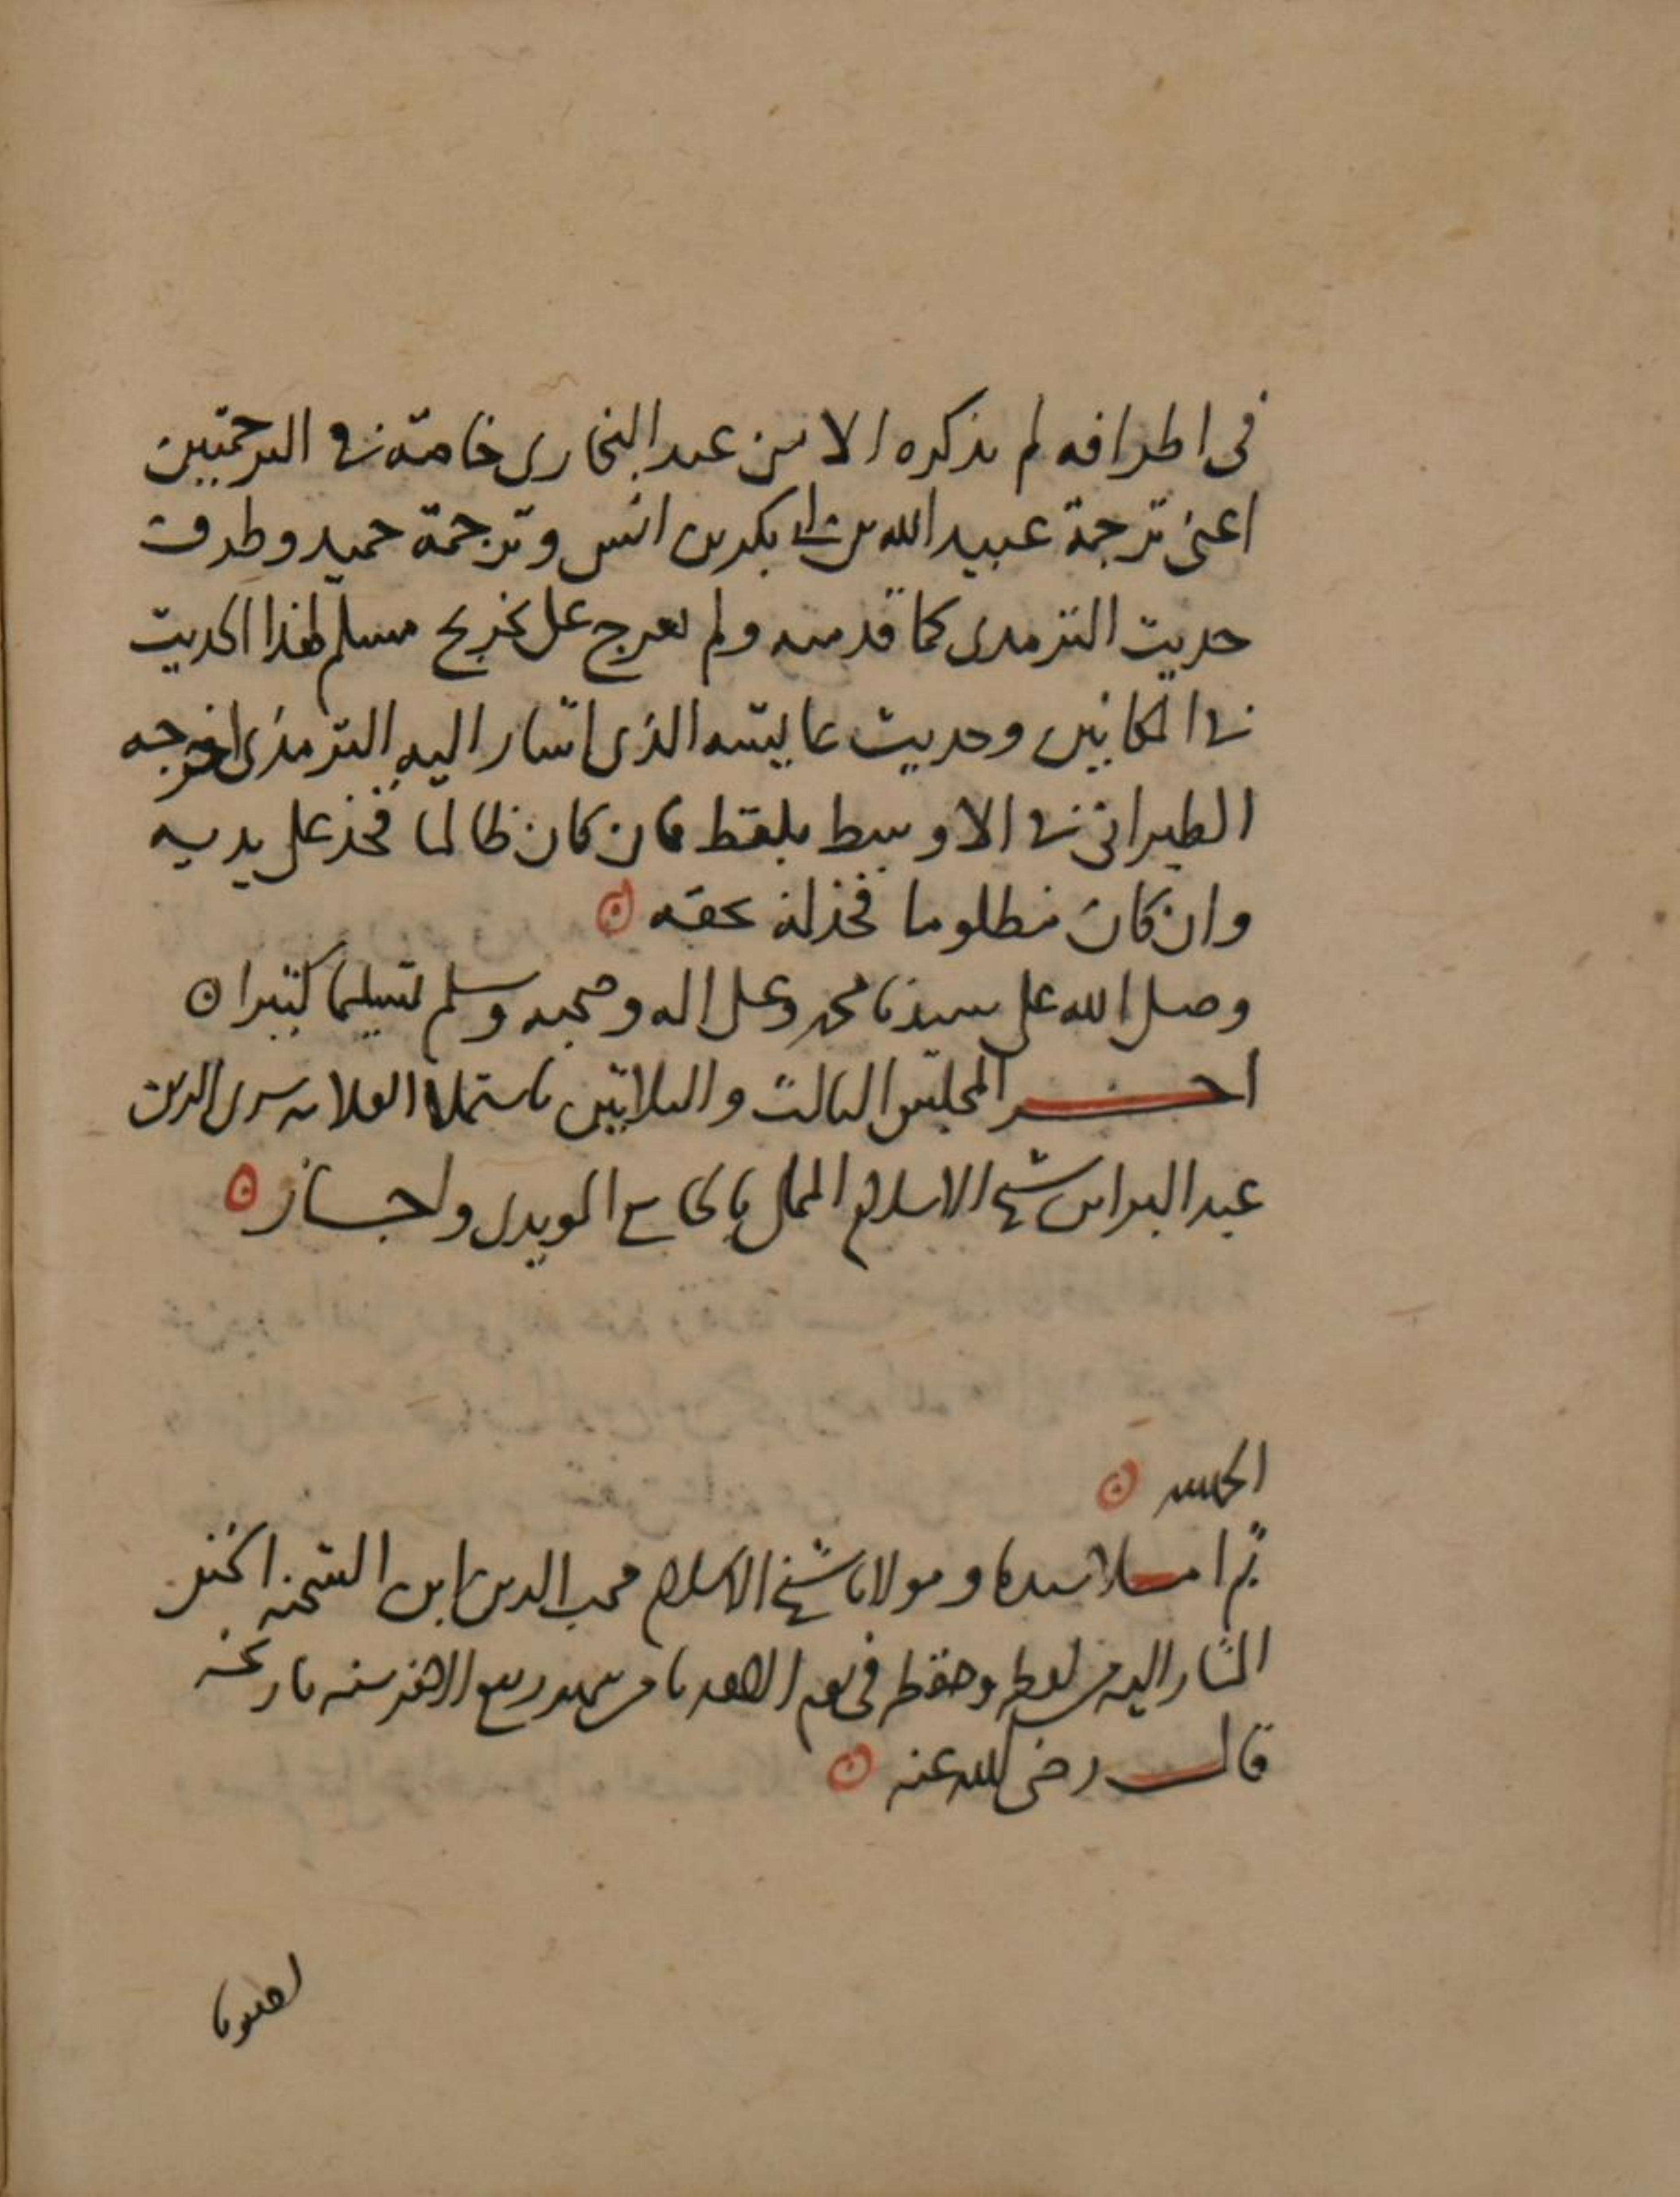 في اطرافه لم يذكره الا من عند البخاري خاصة في الترجمتين
اعني ترجمة عبيد الله بن ابي بكر بن انس وترجمة حميد وطرف
حديث الترمذي كما قدمته ولم يعرج على تخريج مسلم لهذا الحديث
في المكانين وحديث عايشه الذي اشار اليه الترمذي اخرجه
الطبراني في الاوسط بلفظ فان كان ظالما فخذ على يديه
وان كان مظلوما فخذ له بحقه
وصلى الله على سيدنا محمد وعلى اله وصحبه وسلم تسليما كثيرا
اخر المجلس الثالث والثلاثين باستملا العلامه سري الدين
عبد البر ابن شيخ الاسلام المملي بالجامع المويدي واجاز
الحمد لله
ثم املا سيدنا ومولانا شيخ الاسلام محب الدين ابن الشحنه الحنفي
المشار اليه من لفظه وحفظه في يوم الاحد ثامن شهر ربيع الاخر سنه تاريخه
قال رضي الله عنه
اخبرنا